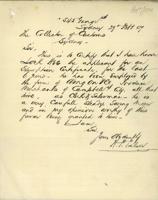 "SAS George St
Sydney 29th Sept 09
The Collector of Customs
Sydney
Sir,
This is to Certify that I have known
Lock the applicant for an
Exemption Certificate, for the last
6 years. He has been employed by
the firm of
Merchants of Campbell St, all
that time, as Chief Salesman. He is
a very Careful Steady Young Man
and in my opinion worthy of this
favor being granted to him.
I am
Sir
Yours Obediently